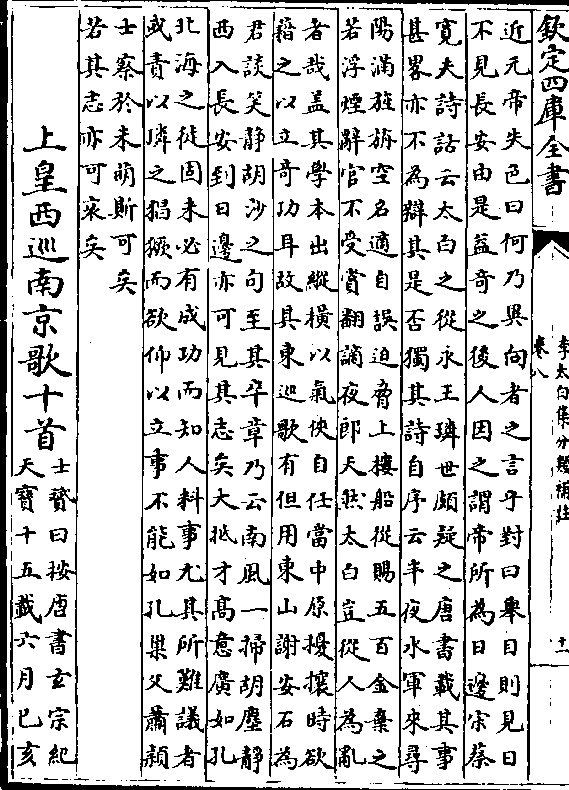 欽定四庫全書
李太白集分類補註
卷八
十一
近元帝失色曰何乃異向者之言乎對曰舉目則見日
不見長安由是益奇之後人因之謂帝所為日邊宋蔡
寛夫詩話云太白之從永王璘世頗疑之唐書載其事
甚畧亦不為辯其是否獨其詩自序云半夜水軍來尋
陽滿旌旃空名適自誤迫脅上樓船從賜五百金棄之
若浮煙辭官不受賞翻謫夜郎天然太白豈從人為亂
者哉盖其學本出縱橫以氣俠自任當中原擾攘時欲
藉之以立奇功耳故其東巡歌有但用東山謝安石為
君談笑靜胡沙之句至其卒章乃云南風一掃胡塵靜
西入長安到日邊亦可見其志矣大抵才髙意廣如孔
北海之徒固未必有成功而知人料事尤其所難議者
或責以璘之猖獗而欲仰以立事不能如孔巢父蕭頴
士察於未萌斯可矣
若其志亦可哀矣
上皇西巡南京歌十首
士贇曰按唐書玄宗紀
天寶十五載六月已亥